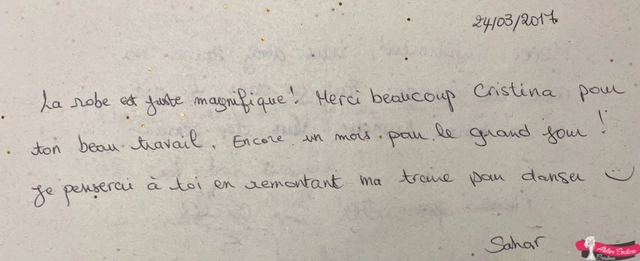 24/03/2017
La robe est juste magnifique! Merci beaucoup Cristina pour
ton beau travail. Encore un mois pour le grand jour!
Je penserai à toi en remontant ma traine pour danser
Sahar